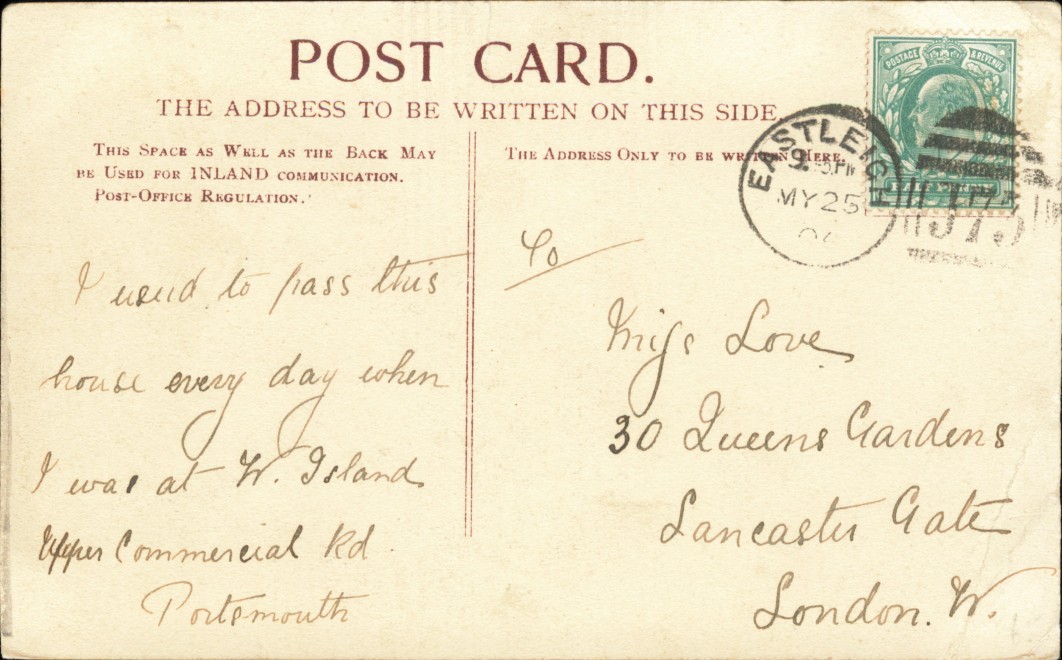 POST CARD.
THE ADDRESS TO BE WRITTEN ON THIS SIDE.
THIS SPACE AS WELL AS THE BACK MAY
BE USED FOR INLAND COMMUNICATION.
POST-OFFICE REGULATION.
THE ADDRESS ONLY TO BE WRITTEN HERE.
POSTAGE & REVENUE
EASTLEIGH
MY 25
04
I used to pass this
house every day when
I was at W. Island
Upper Commercial Rd
Portsmouth
To
Miss Love
30 Queens Gardens
Lancaster Gate
London. W.